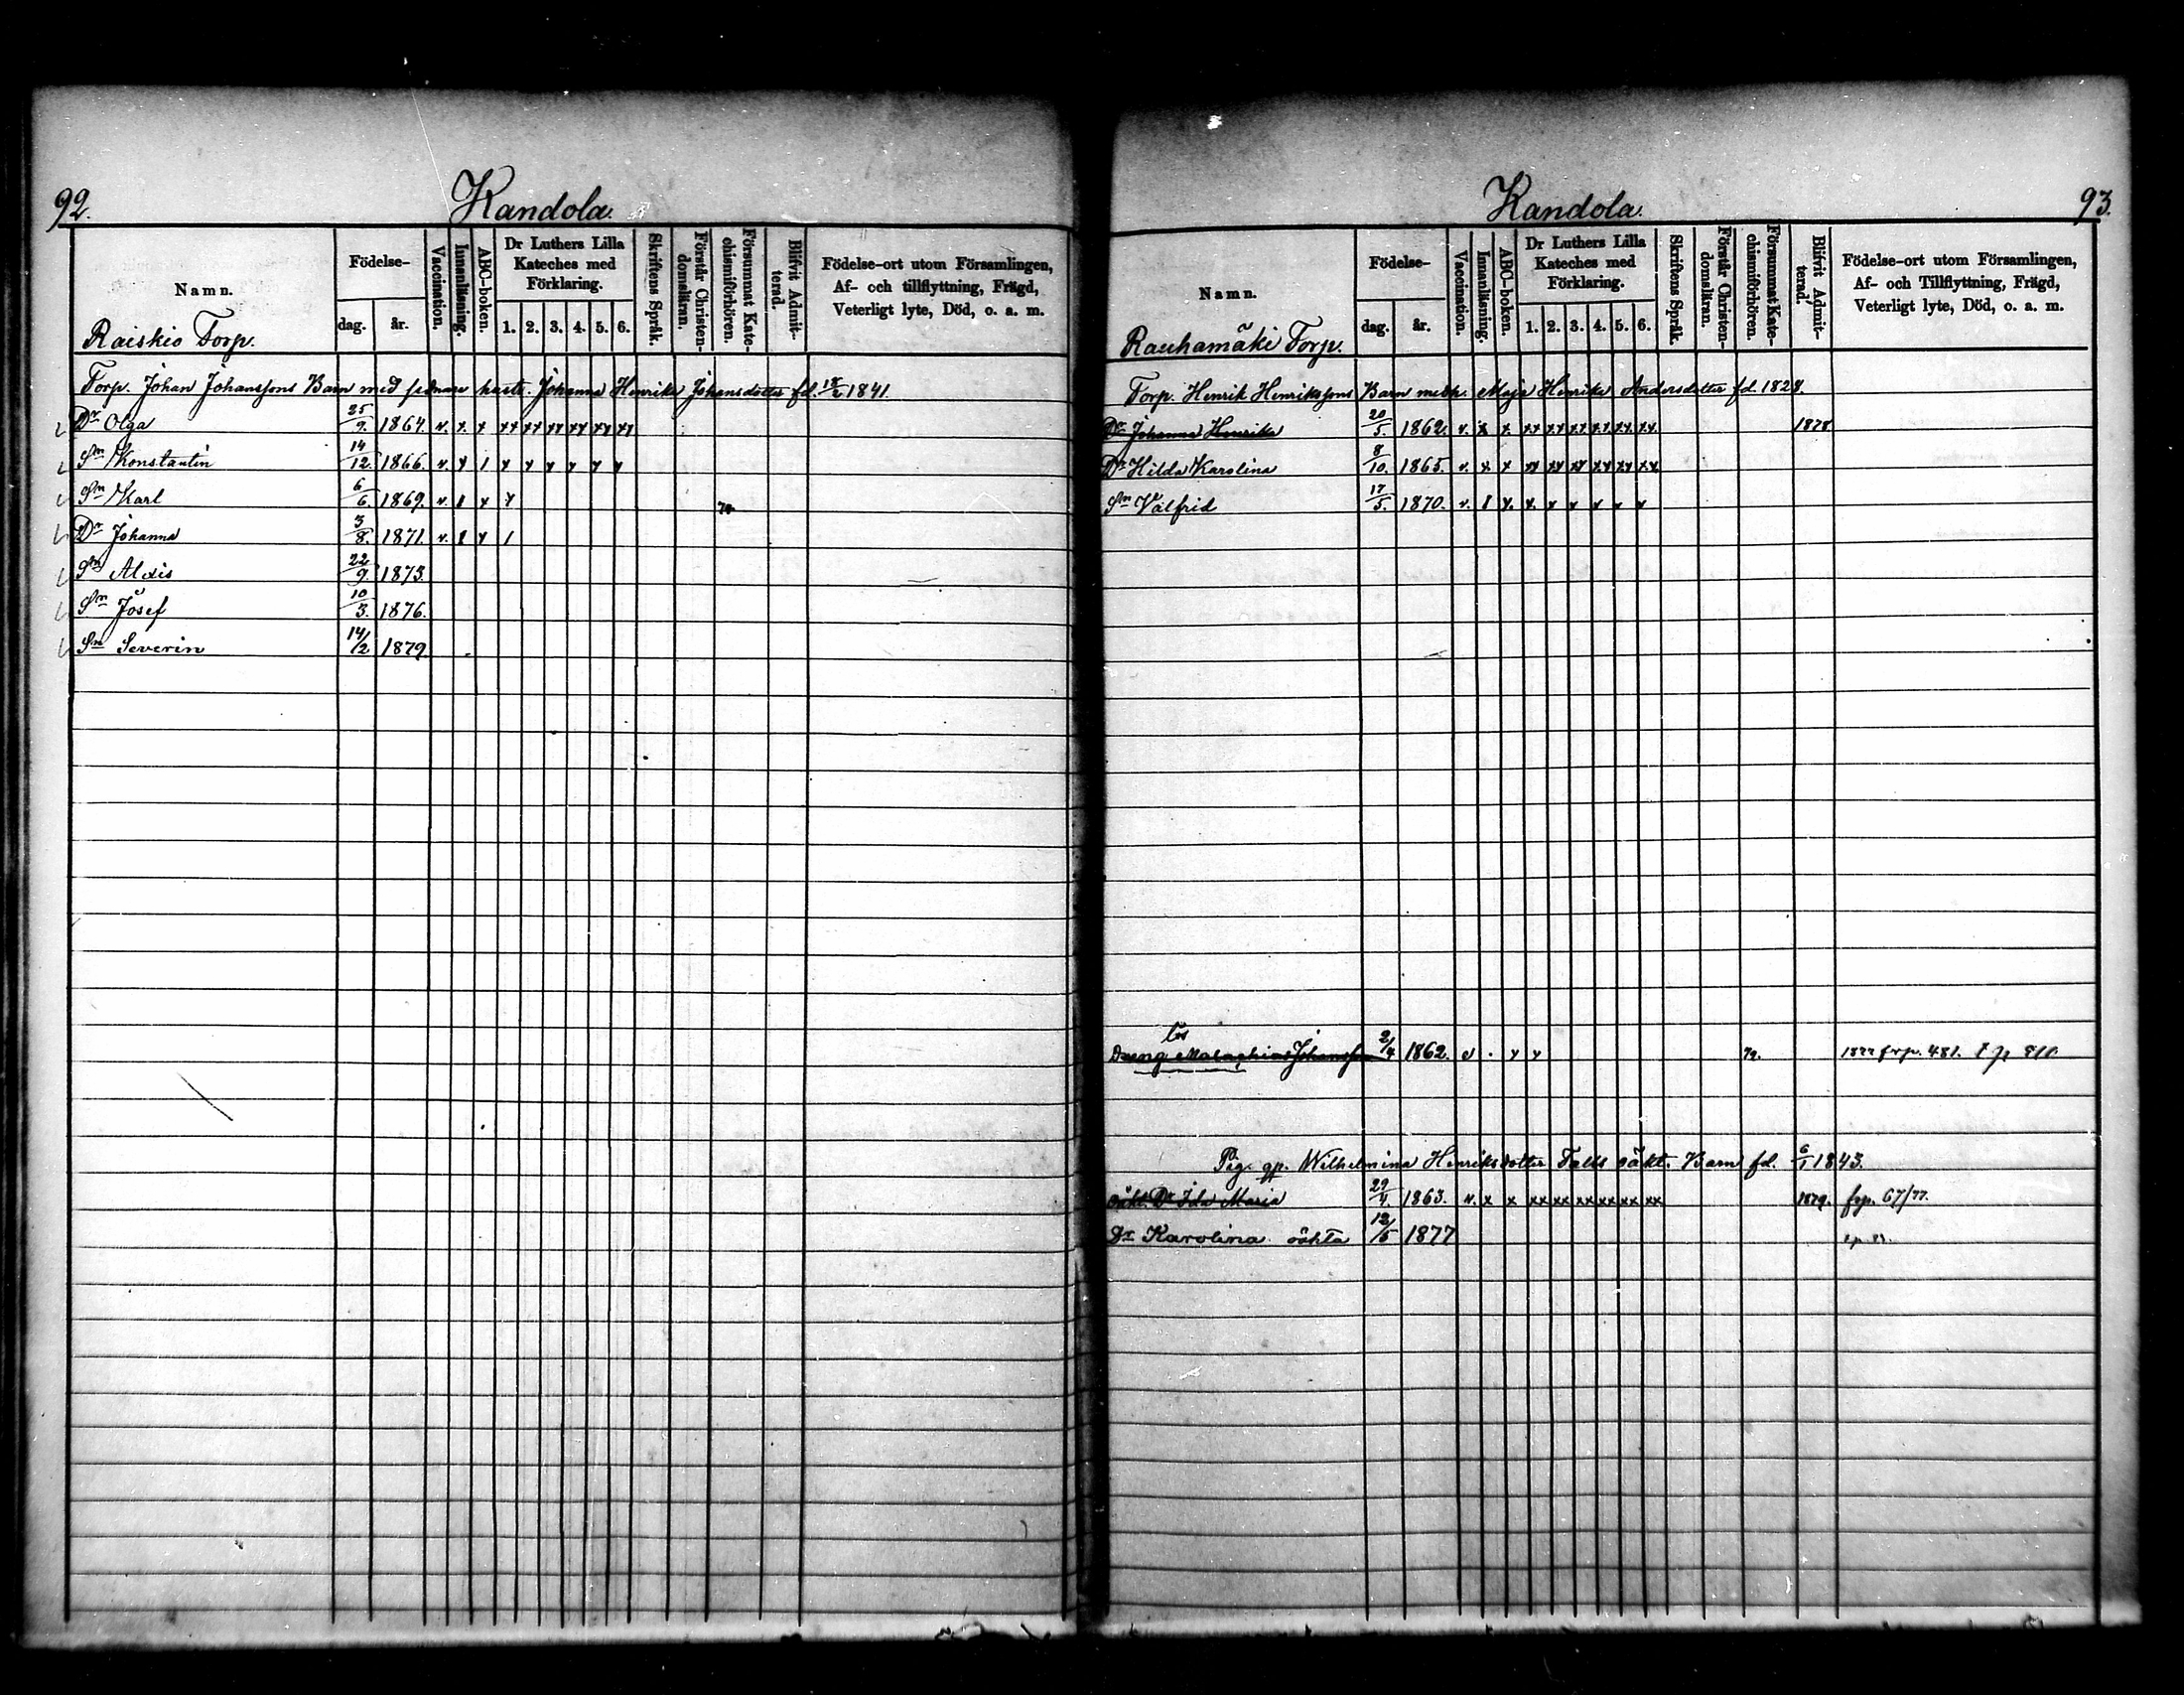 92.
Kandola.
Namn.
Födelse-
dag.
år.
Vaccination.
Innanläsning.
ABC-boken.
Dr Luthers Lilla
Kateches med
Förklaring.
1. 2. 3. 4. 5. 6.
Skriftens Språk.
Förstår Christen-
domsläran.
Försummat Kate-
chismiförhören.
Blifvit Admit-
terad.
Födelse-ort utom Församlingen,
Af- och tillflyttning, Frägd,
Veterligt lyte, Död, o. a. m.
Raiskio Torp.
Torp. Johan Johanssons Barn med hustr. Johanna Henrika Johansdotter fd. 1841.
Dr Olga 25/9. 1864. v. x. x xx xx xx xx xx xx
Sn Konstantin 14/12. 1866. v. y 1 y y y y y y
Sn Karl 6/6. 1869. v. 1 y y
Dr Johanna 3/8. 1871. v. 1 y 1
Sn Alexis 22/9. 1873.
Sn Josef 10/3. 1876.
Sn Severin 14/2 1879.
93.
Kandola.
Namn.
Födelse-
dag.
år.
Vaccination.
Innanläsning.
ABC-boken.
Dr Luthers Lilla
Kateches med
Förklaring.
1. 2. 3. 4. 5. 6.
Skriftens Språk.
Förstår Christen-
domsläran.
Försummat Kate-
chismiförhören.
Blifvit Admit-
terad.
Födelse-ort utom Församlingen,
Af- och Tillflyttning, Frägd,
Veterligt lyte, Död, o. a. m.
Rauhamäki Torp.
Torp. Henrik Henrikssons Barn med h. Maja Henrika Andersdotter fd. 1828.
Dr Johanna Henrika 20/5. 1862. v. x x xx xx xx xx xx xx 1878
Dr Hilda Karolina 8/10. 1865. v. x x xx xx xx xx xx xx
Sn Valfrid 17/5. 1870. v. 1 x. x. x x x x x
Lös
Dreng Malachias Johansson 2/4 1862. v . y y 72. frp. 481.
Pig. gp. Wilhelmina Henriksdotter Falks oäkt. Barn fd. 6/1 1843.
oäkt. Dr Ida Maria 29/4. 1863. v. x x xx xx xx xx xx xx 1879. frp. 67/77.
Dr Karolina oäkta 12/5 1877